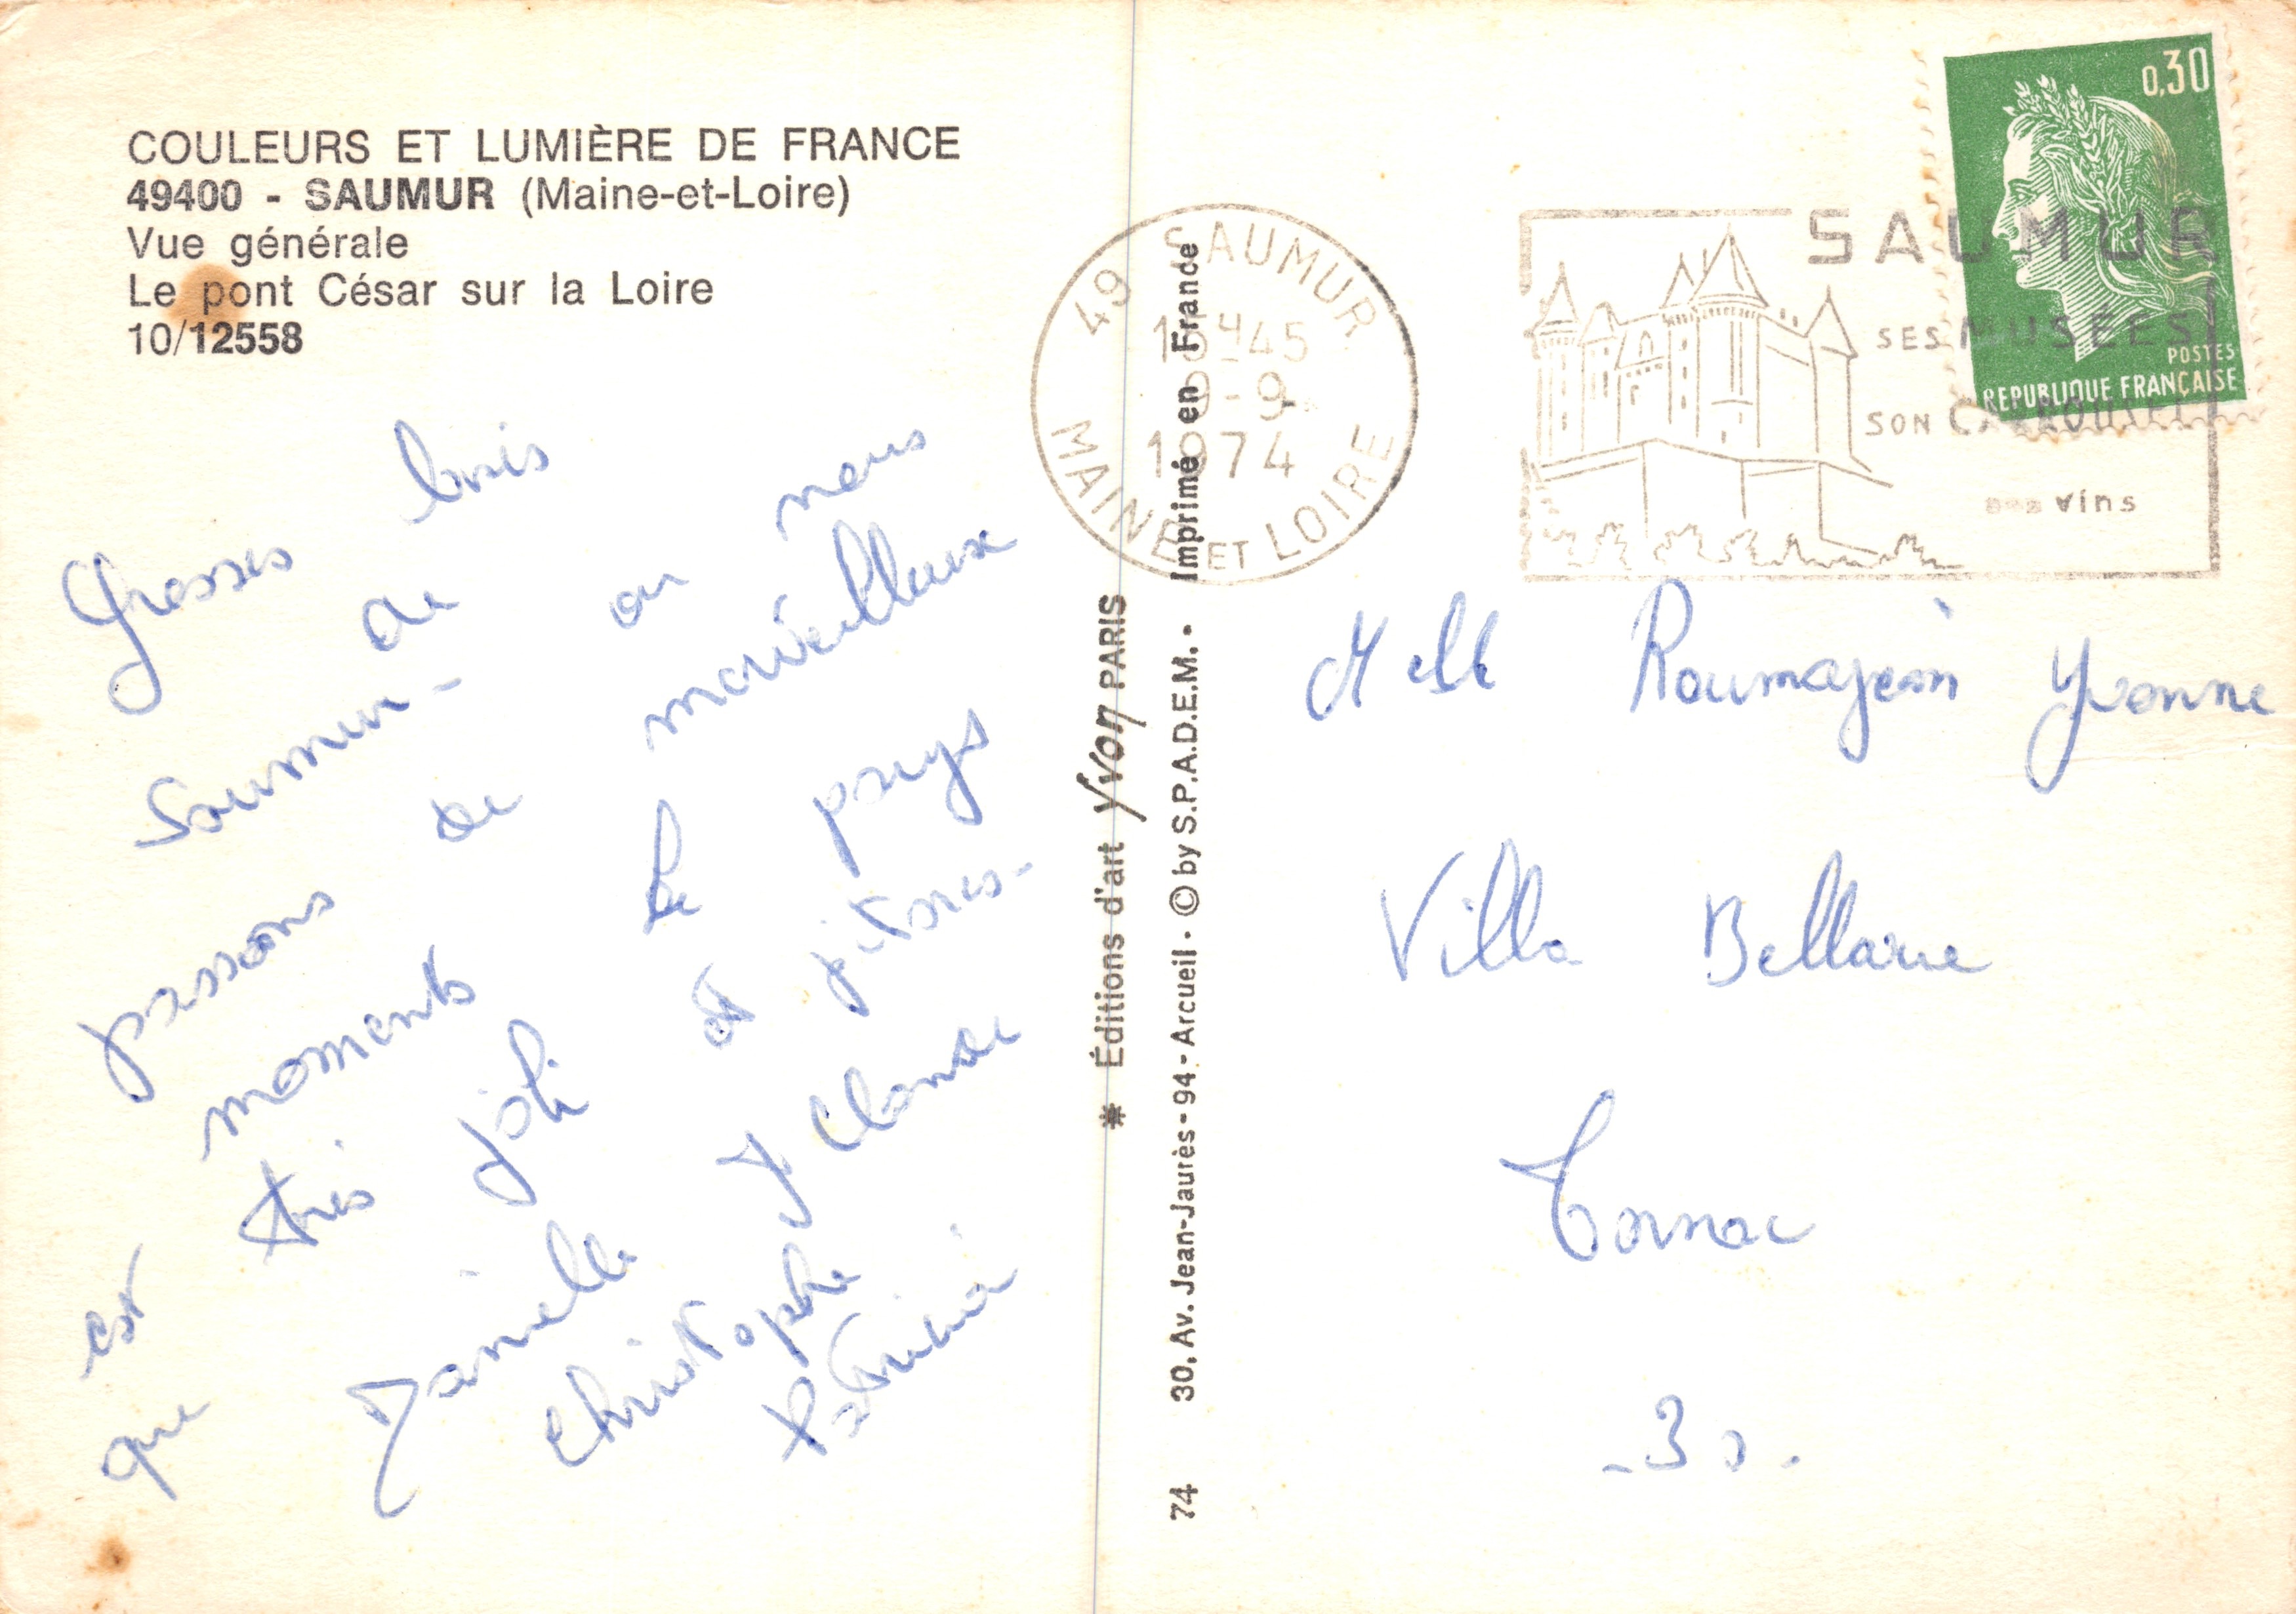 COULEURS ET LUMIÈRE DE FRANCE
49400 - SAUMUR (Maine-et-Loire)
Vue générale
Le pont César sur la Loire
10/12558
Grosses bises
de
Saumur - ou nous
passons de merveilleux
moments Le pays
est très joli et pitores-
que
Danielle J Claude
Christophe
Patricia
* Éditions d'art Yvon PARIS
74 30, Av. Jean-Jaurès - 94 - Arcueil • © by S.P.A.D.E.M. • Imprimé en France
49 SAUMUR
H45
9-9
1974
MAINE ET LOIRE
SAUMUR
SES MUSÉES
SON CARROUSEL
vins
0,30
POSTES
REPUBLIQUE FRANÇAISE
Melle Roumajean Yvonne
Villa Bellarue
Tornac
- 30.